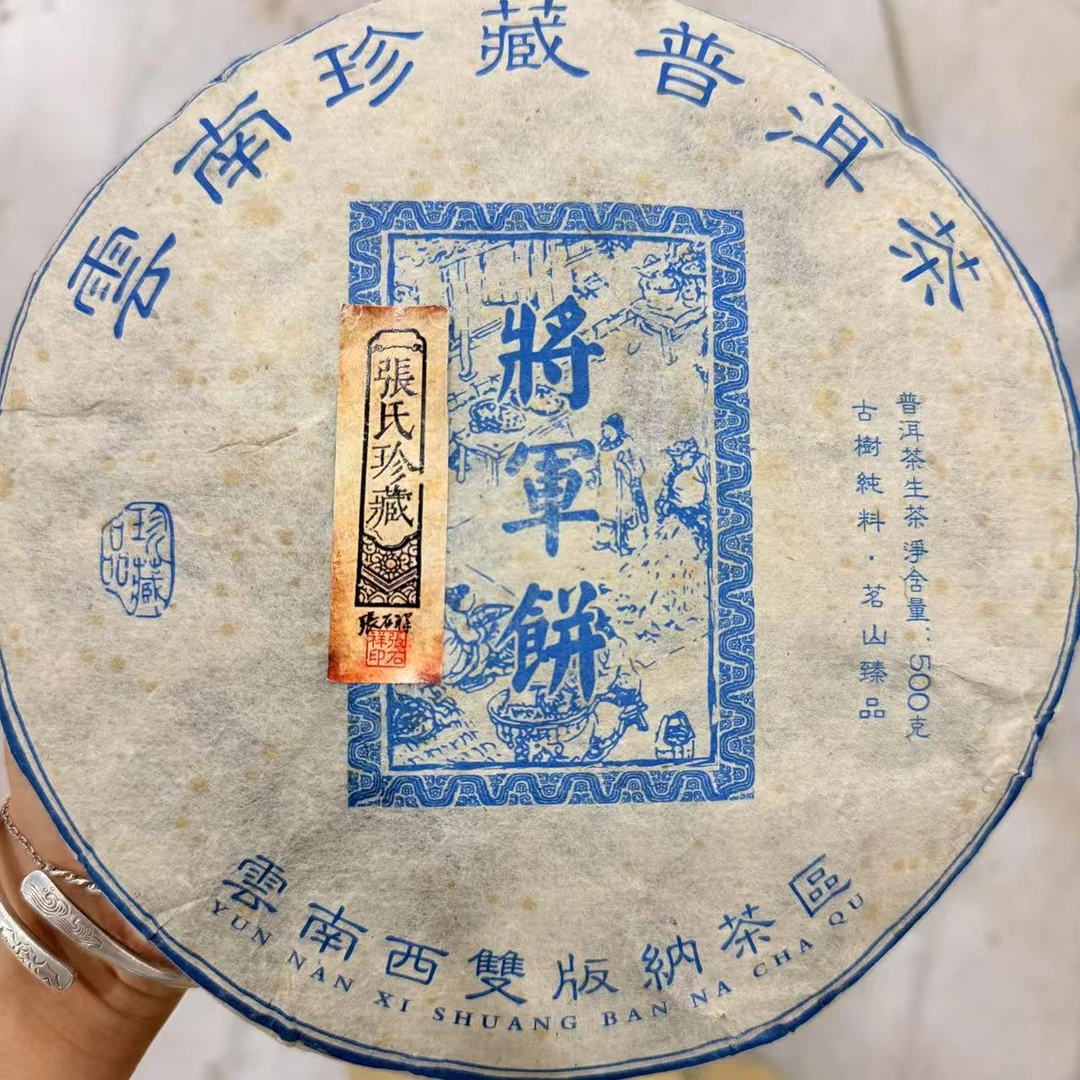 雲南珍藏普洱茶
將軍餅
張氏珍藏
張石祥
張石祥印
珍藏品
普洱茶生茶淨含量:500克
古樹純料·茗山臻品
雲南西雙版納茶區
YUN NAN XI SHUANG BAN NA CHA QU